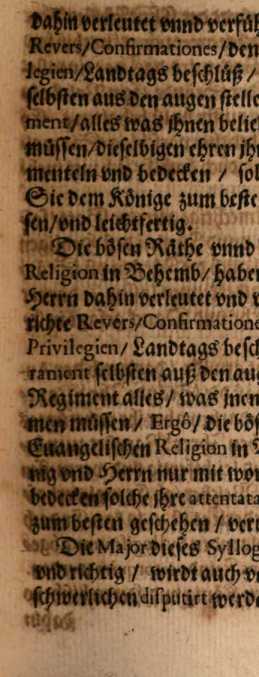 dahin verleutet vnnd verfüh
Revers/Confirmationes/den
legien/Landtags beschlüß /
selbsten aus den augen stelle
ment/alles was jhnen belie
müssen/dieselbigen ehren jhr
menteln vnd bedecken / sol
Sie dem Könige zum beste
sen/vnd leichtfertig.
Die bösen Räthe vnnd
Religion in Behemb/ haben
Herrn dahin verleutet vnd v
richte Revers/Confirmatione
Privilegien/ Landtags besch
rament selbsten auß den aug
Regiment alles/ was jnen
men müssen / Ergô/ die bös
Euangelischen Religion in
nig vnd Herrn nur mit wor
bedecken solche jhre attentata
zum besten geschehen / ver
Die Major dieses Syllog
vnd richtig / wirdt auch v
schwerlichen disputirt werde